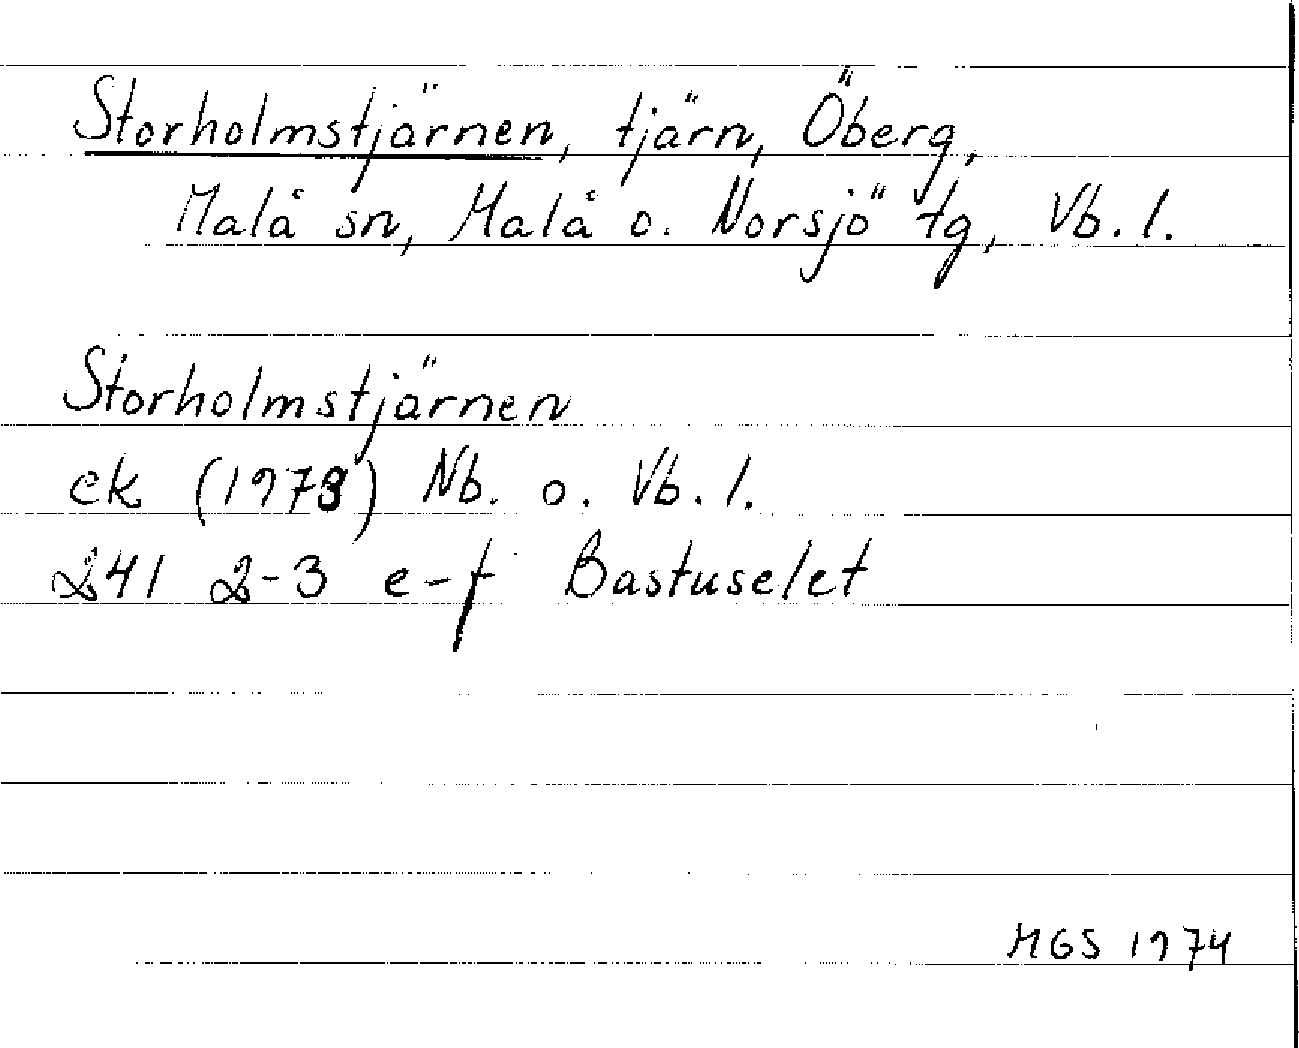 Storholmstjärnen, tjärn, Öberg,
Malå sn, Malå o. Norsjö tg, Vb. l.
Storholmstjärnen
ek (1973) Nb. o. Vb. l.
241 2-3 e-f Bastuselet
MGS 1974